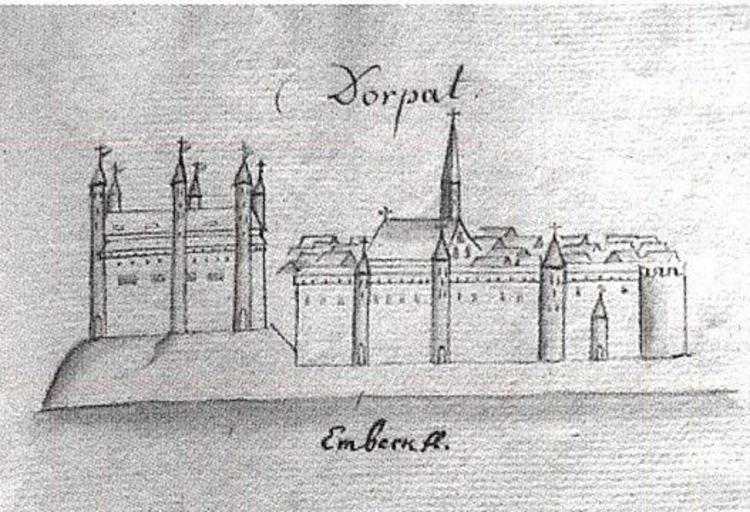 Dorpat.
Embeck fl.